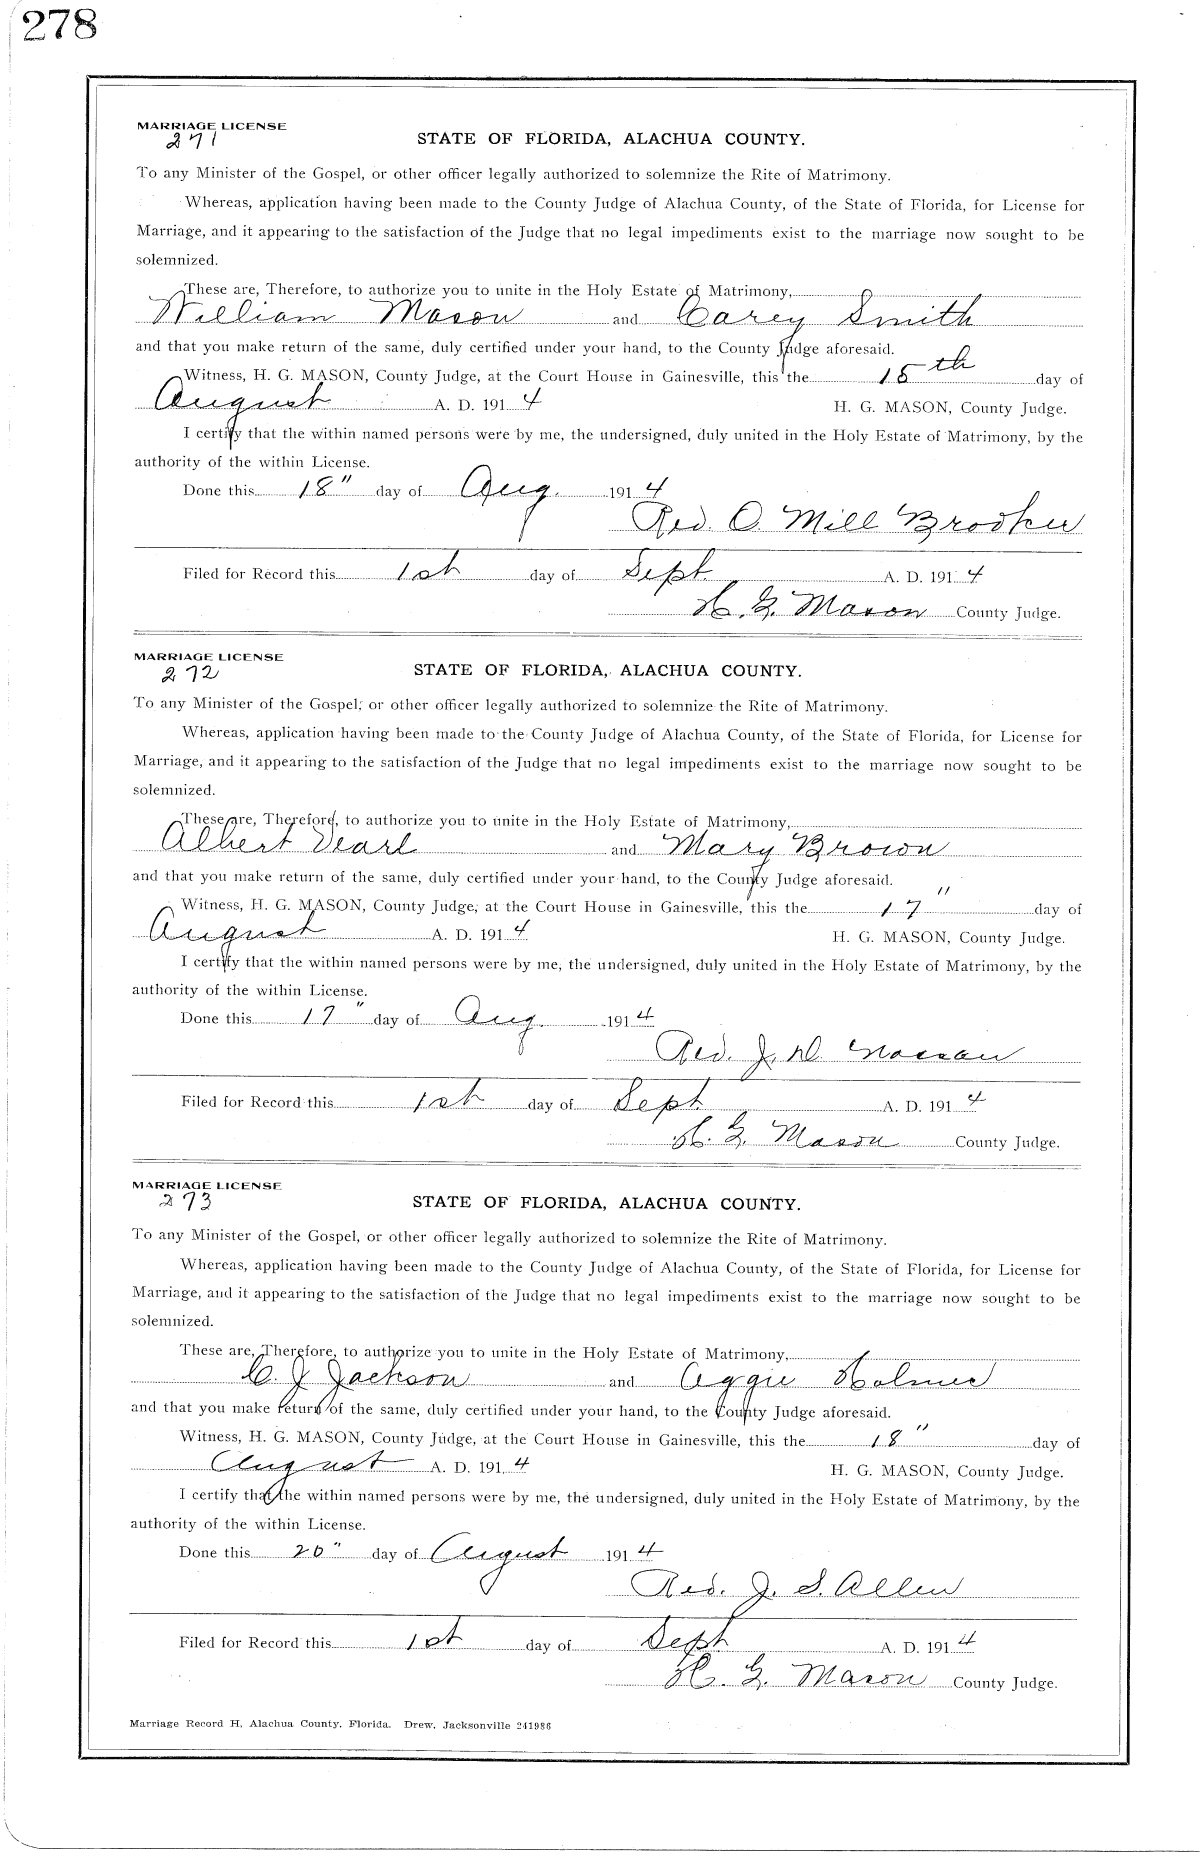 278
MARRIAGE LICENSE
271
STATE OF FLORIDA, ALACHUA COUNTY.
To any Minister of the Gospel, or other officer legally authorized to solemnize the Rite of Matrimony.
Whereas, application having been made to the County Judge of Alachua County, of the State of Florida, for License for
Marriage, and it appearing to the satisfaction of the Judge that no legal impediments exist to the marriage now sought to be
solemnized.
These are, Therefore, to authorize you to unite in the Holy Estate of Matrimony,
William Mason and Carey Smith
and that you make return of the same, duly certified under your hand, to the County Judge aforesaid.
Witness, H. G. MASON, County Judge, at the Court House in Gainesville, this the 15th day of
August A. D. 1914 H. G. MASON, County Judge.
I certify that the within named persons were by me, the undersigned, duly united in the Holy Estate of Matrimony, by the
authority of the within License.
Done this 18" day of Aug. 1914
Rev. O. Mill Brooker
Filed for Record this 1st day of Sept. A. D. 1914
H. G. Mason County Judge.
MARRIAGE LICENSE
272
STATE OF FLORIDA, ALACHUA COUNTY.
To any Minister of the Gospel, or other officer legally authorized to solemnize the Rite of Matrimony.
Whereas, application having been made to the County Judge of Alachua County, of the State of Florida, for License for
Marriage, and it appearing to the satisfaction of the Judge that no legal impediments exist to the marriage now sought to be
solemnized.
These are, Therefore, to authorize you to unite in the Holy Estate of Matrimony,
Albert and Mary Brown
and that you make return of the same, duly certified under your hand, to the County Judge aforesaid.
Witness, H. G. MASON, County Judge, at the Court House in Gainesville, this the 17" day of
August A. D. 1914 H. G. MASON, County Judge.
I certify that the within named persons were by me, the undersigned, duly united in the Holy Estate of Matrimony, by the
authority of the within License.
Done this 17" day of Aug. 1914
Rev. J. D.
Filed for Record this 1st day of Sept. A. D. 1914
H. G. Mason County Judge.
MARRIAGE LICENSE
273
STATE OF FLORIDA, ALACHUA COUNTY.
To any Minister of the Gospel, or other officer legally authorized to solemnize the Rite of Matrimony.
Whereas, application having been made to the County Judge of Alachua County, of the State of Florida, for License for
Marriage, and it appearing to the satisfaction of the Judge that no legal impediments exist to the marriage now sought to be
solemnized.
These are, Therefore, to authorize you to unite in the Holy Estate of Matrimony,
C. J Jackson and Aggie Holmes
and that you make return of the same, duly certified under your hand, to the County Judge aforesaid.
Witness, H. G. MASON, County Judge, at the Court House in Gainesville, this the 18" day of
August A. D. 1914 H. G. MASON, County Judge.
I certify that the within named persons were by me, the undersigned, duly united in the Holy Estate of Matrimony, by the
authority of the within License.
Done this 20" day of August 1914
Rev. J. S. Allen
Filed for Record this 1st day of Sept A. D. 1914
H. G. Mason County Judge.
Marriage Record H, Alachua County, Florida. Drew, Jacksonville 241986